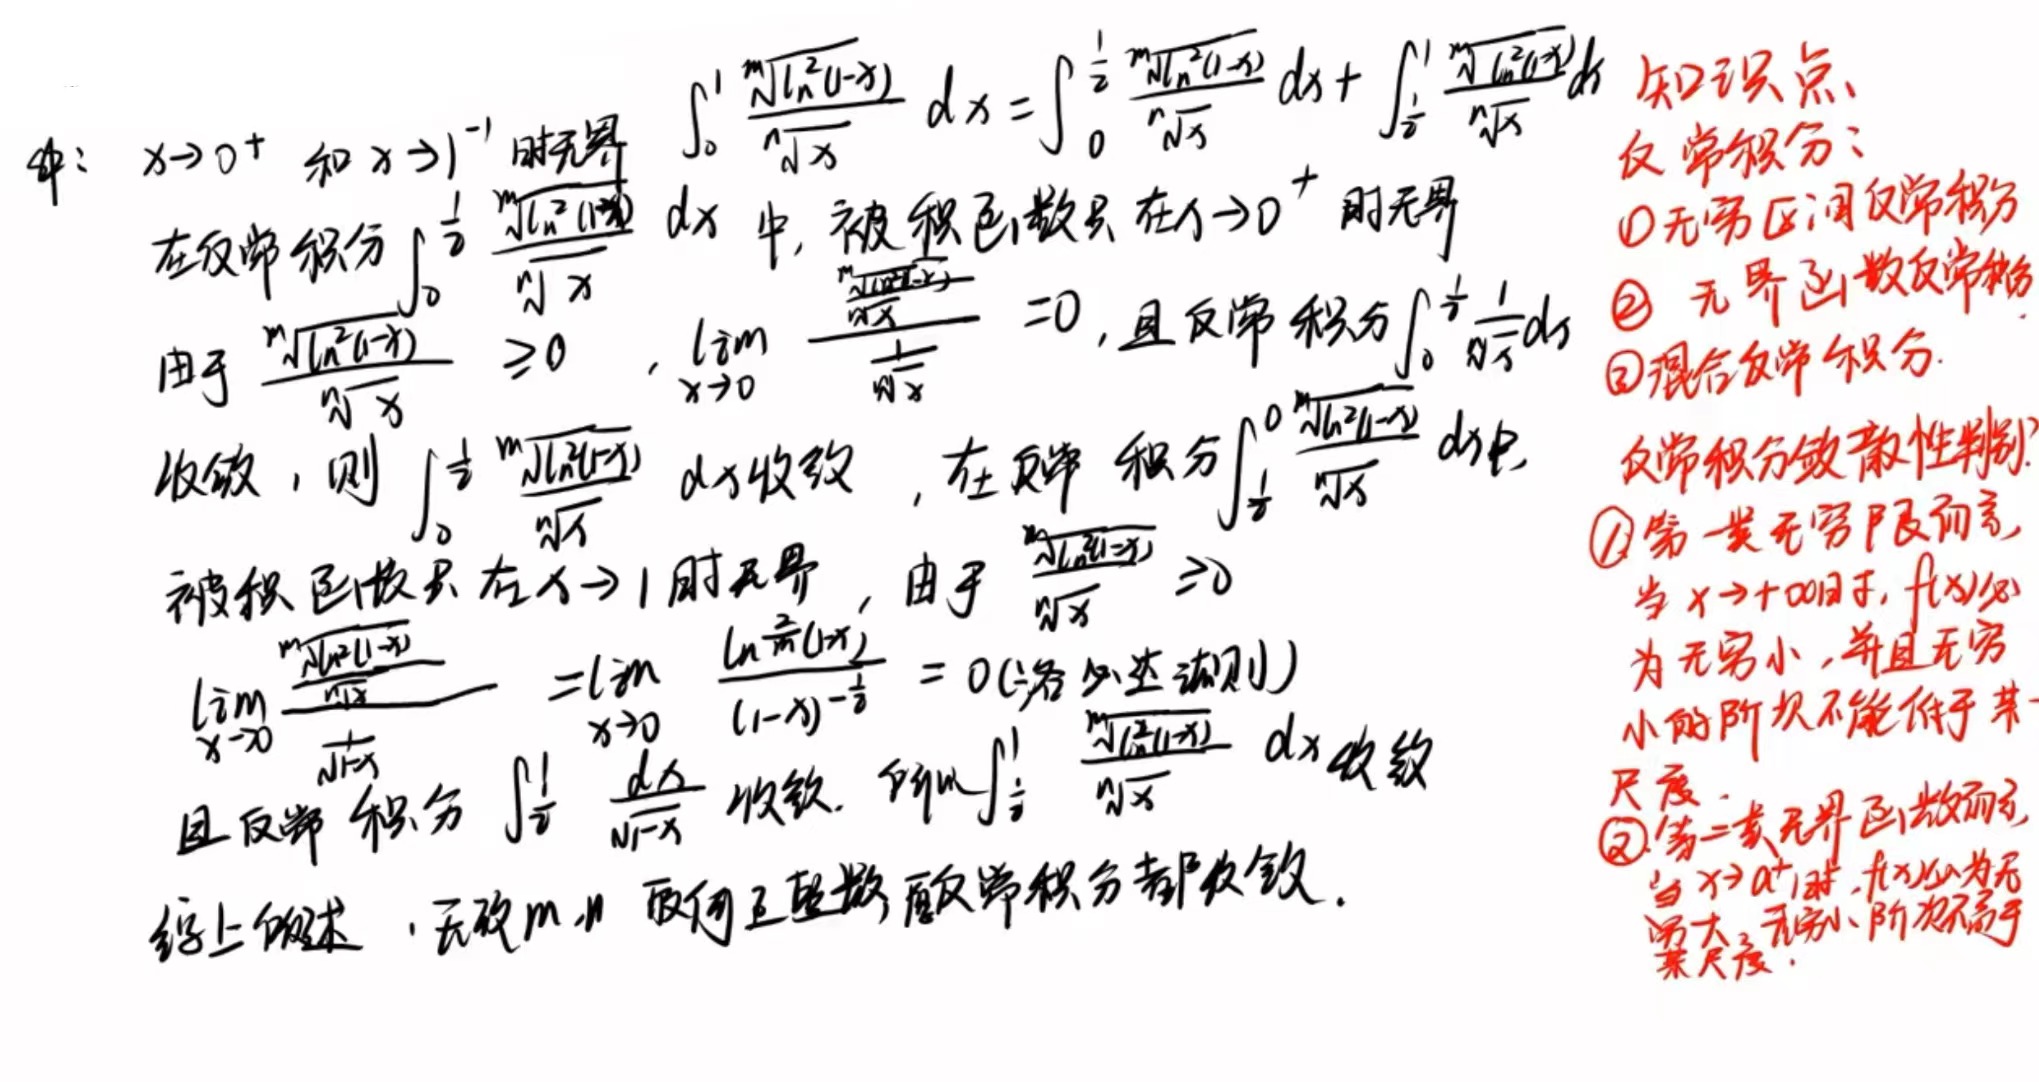 解： x→0⁺ 和 x→1⁻¹ 时无界 ∫₀¹ ᵐ√(ln²(1-x)) / ⁿ√x dx = ∫₀^{1/2} ᵐ√(ln²(1-x)) / ⁿ√x dx + ∫_{1/2}^1 ᵐ√(ln²(1-x)) / ⁿ√x dx
在反常积分 ∫₀^{1/2} ᵐ√(ln²(1-x)) / ⁿ√x dx 中, 被积函数只在 x→0⁺ 时无界
由于 ᵐ√(ln²(1-x)) / ⁿ√x ≥0 , lim_{x→0} (ᵐ√(ln²(1-x)) / ⁿ√x) / (1/ⁿ√x) =0, 且反常积分 ∫₀^{1/2} 1/ⁿ√x dx
收敛, 则 ∫₀^{1/2} ᵐ√(ln²(1-x)) / ⁿ√x dx 收敛, 在反常积分 ∫_{1/2}^0 ᵐ√(ln²(1-x)) / ⁿ√x dx 中,
被积函数只在 x→1 时无界, 由于 ᵐ√(ln²(1-x)) / ⁿ√x ≥0
lim_{x→0} (ᵐ√(ln²(1-x)) / ⁿ√x) / (1/√(1-x)) = lim_{x→0} ln^{2/m}(1-x) / (1-x)^{-1/2} = 0 (洛必达法则)
且反常积分 ∫_{1/2}^1 dx/√(1-x) 收敛. 所以 ∫_{1/2}^1 ᵐ√(ln²(1-x)) / ⁿ√x dx 收敛
综上所述, 无论 m,n 取何正整数, 原反常积分都收敛.
知识点、
反常积分:
① 无穷区间反常积分
② 无界函数反常积分.
③ 混合反常积分.
反常积分敛散性判别:
① 第一类无穷限而言,
当 x→+∞时, f(x)必
为无穷小, 并且无穷
小的阶次不能低于某一
尺度.
② 第二类无界函数而言,
当 x→a⁺时, f(x)必为无
穷大, 无穷小阶次不高于
某尺度.